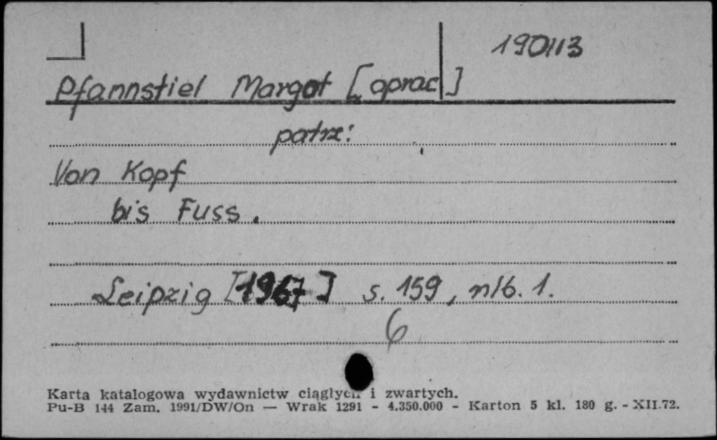 190113
Pfannstiel Margot [oprac]
patrz:
Von Kopf
bis Fuss.
Leipzig [1967] s. 159, nlb. 1.
6
Karta katalogowa wydawnictw ciągłych i zwartych.
Pu-B 144 Zam. 1991/DW/On — Wrak 1291 - 4.350.000 - Karton 5 kl. 180 g. - XII.72.